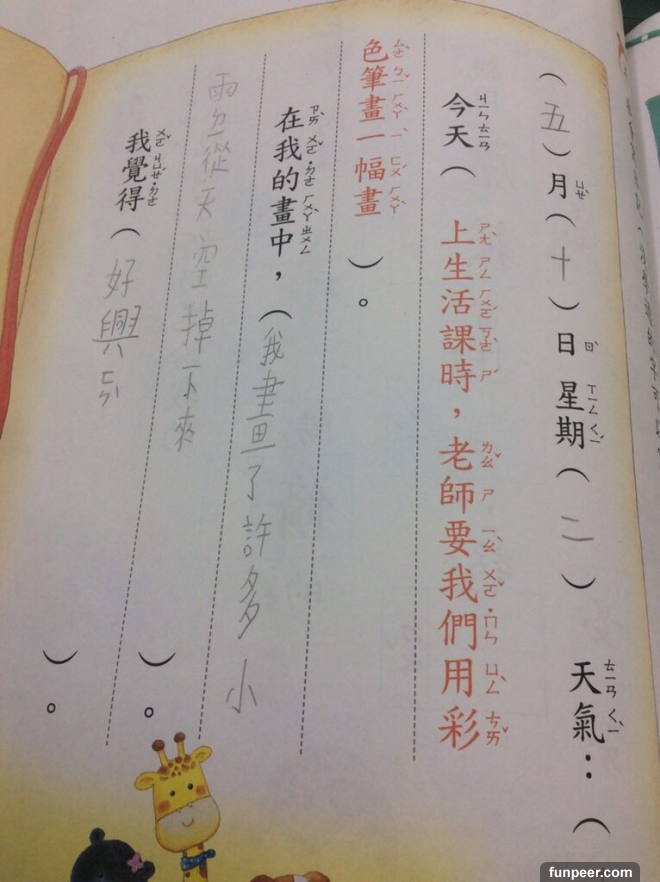 （五）月（十）日 星期（二） 天氣：（
今天（上生活課時，老師要我們用彩
色筆畫一幅畫）。
在我的畫中，（我畫了許多小
雨包從天空掉下來）。
我覺得（好興ㄈㄣˋ）。
funpeer.com